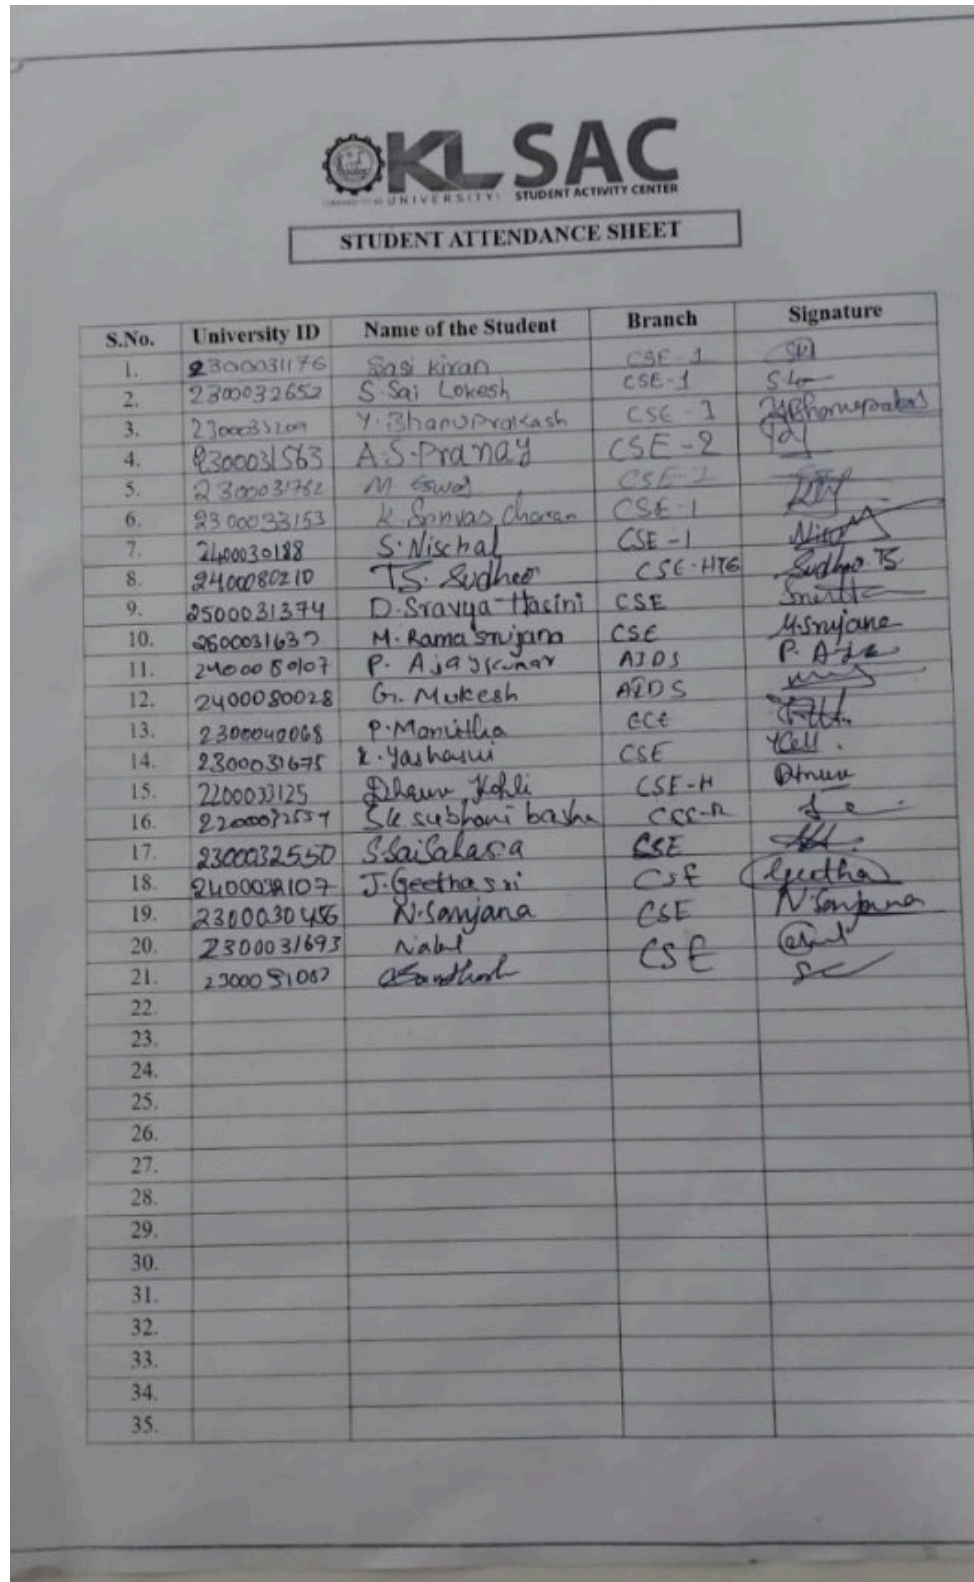 KL SAC
UNIVERSITY STUDENT ACTIVITY CENTER
STUDENT ATTENDANCE SHEET
S.No. University ID Name of the Student Branch Signature
1. 2300031176 Sasi Kiran CSE-1
2. 2300032652 S. Sai Lokesh CSE-1
3. Y. Bhanuprakash CSE-1 Y.Bhanuprakash
4. 2300031563 A.S.Pranay CSE-2
5. 2300031762 M
6. 2300033153 K. Srinivas Charan CSE-1
7. 2400030188 S. Nischal CSE-1
8. 2400080210 T.S. Sudheer Sudheer T.S.
9. 2500031374 D. Sravya Hasini CSE
10. M. Rama Srujana CSE M.Srujana
11. 2400080107 P. Ajaykumar AIDS P.
12. 2400080028 G. Mukesh AIDS
13. 2300040068 P. Manvitha ECE
14. 2300031675 K. Yashaswi CSE
15. 2200033125 Dhruv Kohli CSE-H Dhruv
16. Sk. subhani basha
17. 2300032550 S.SaiSahasra CSE
18. J. Geethasri CSE Geetha
19. 2300030456 N. Sanjana CSE N. Sanjana
20. 2300031693 CSE
21.
22.
23.
24.
25.
26.
27.
28.
29.
30.
31.
32.
33.
34.
35.